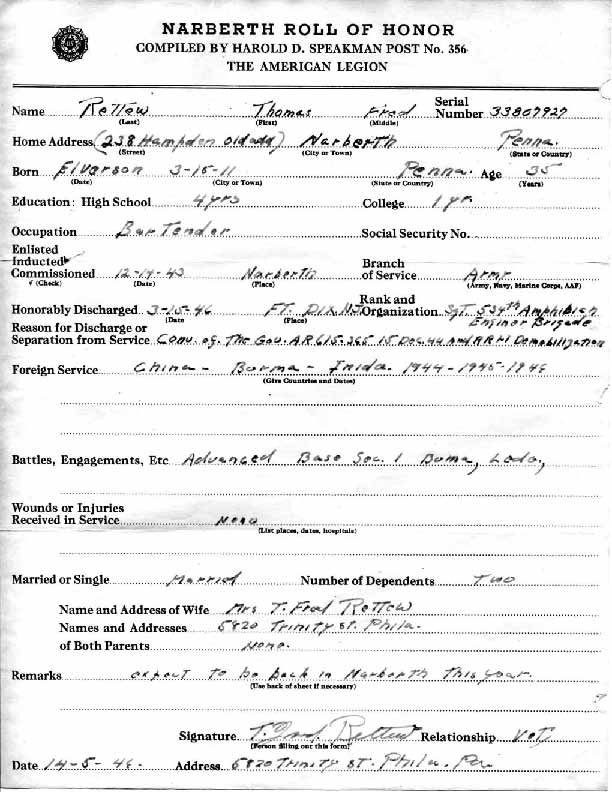 NARBERTH ROLL OF HONOR
COMPILED BY HAROLD D. SPEAKMAN POST No. 356
THE AMERICAN LEGION
Name Rettew Thomas Fred Serial Number 33807927
(Last) (First) (Middle)
Home Address (238 Hampden old add) Narberth Penna.
(Street) (City or Town) (State or Country)
Born Elverson 3-15-11 Penna. Age 35
(Date) (City or Town) (State or Country) (Years)
Education: High School 4 yrs College 1 yr.
Occupation Bar Tender Social Security No.
Enlisted
Inducted
Commissioned 12-14-43 Narberth Branch of Service Army
(Check) (Date) (Place) (Army, Navy, Marine Corps, AAF)
Honorably Discharged 3-15-46 FT. DIX NJ Rank and Organization Sgt. 534th Amphibian
(Date (Place) Enginer Brigade
Reason for Discharge or
Separation from Service Conv. of. The Gov. AR 615-365 15 Dec. 44 and RR1-1 Demobilization
Foreign Service China - Borma - Inida. 1944-1945-1946
(Give Countries and Dates)
Battles, Engagements, Etc Advanced Base Sec. 1 Buma, Ledo,
Wounds or Injuries
Received in Service None
(List places, dates, hospitals)
Married or Single Married Number of Dependents Two
Name and Address of Wife Mrs T. Fred Rettew
Names and Addresses 5820 Trinity st. Phila.
of Both Parents None.
Remarks expect to be back in Narberth This year.
(Use back of sheet if necessary)
Signature T. Fred Rettew Relationship Vet.
(Person filling out this form)
Date 14-5-46. Address 5820 Trinity ST. Phila. Pa.